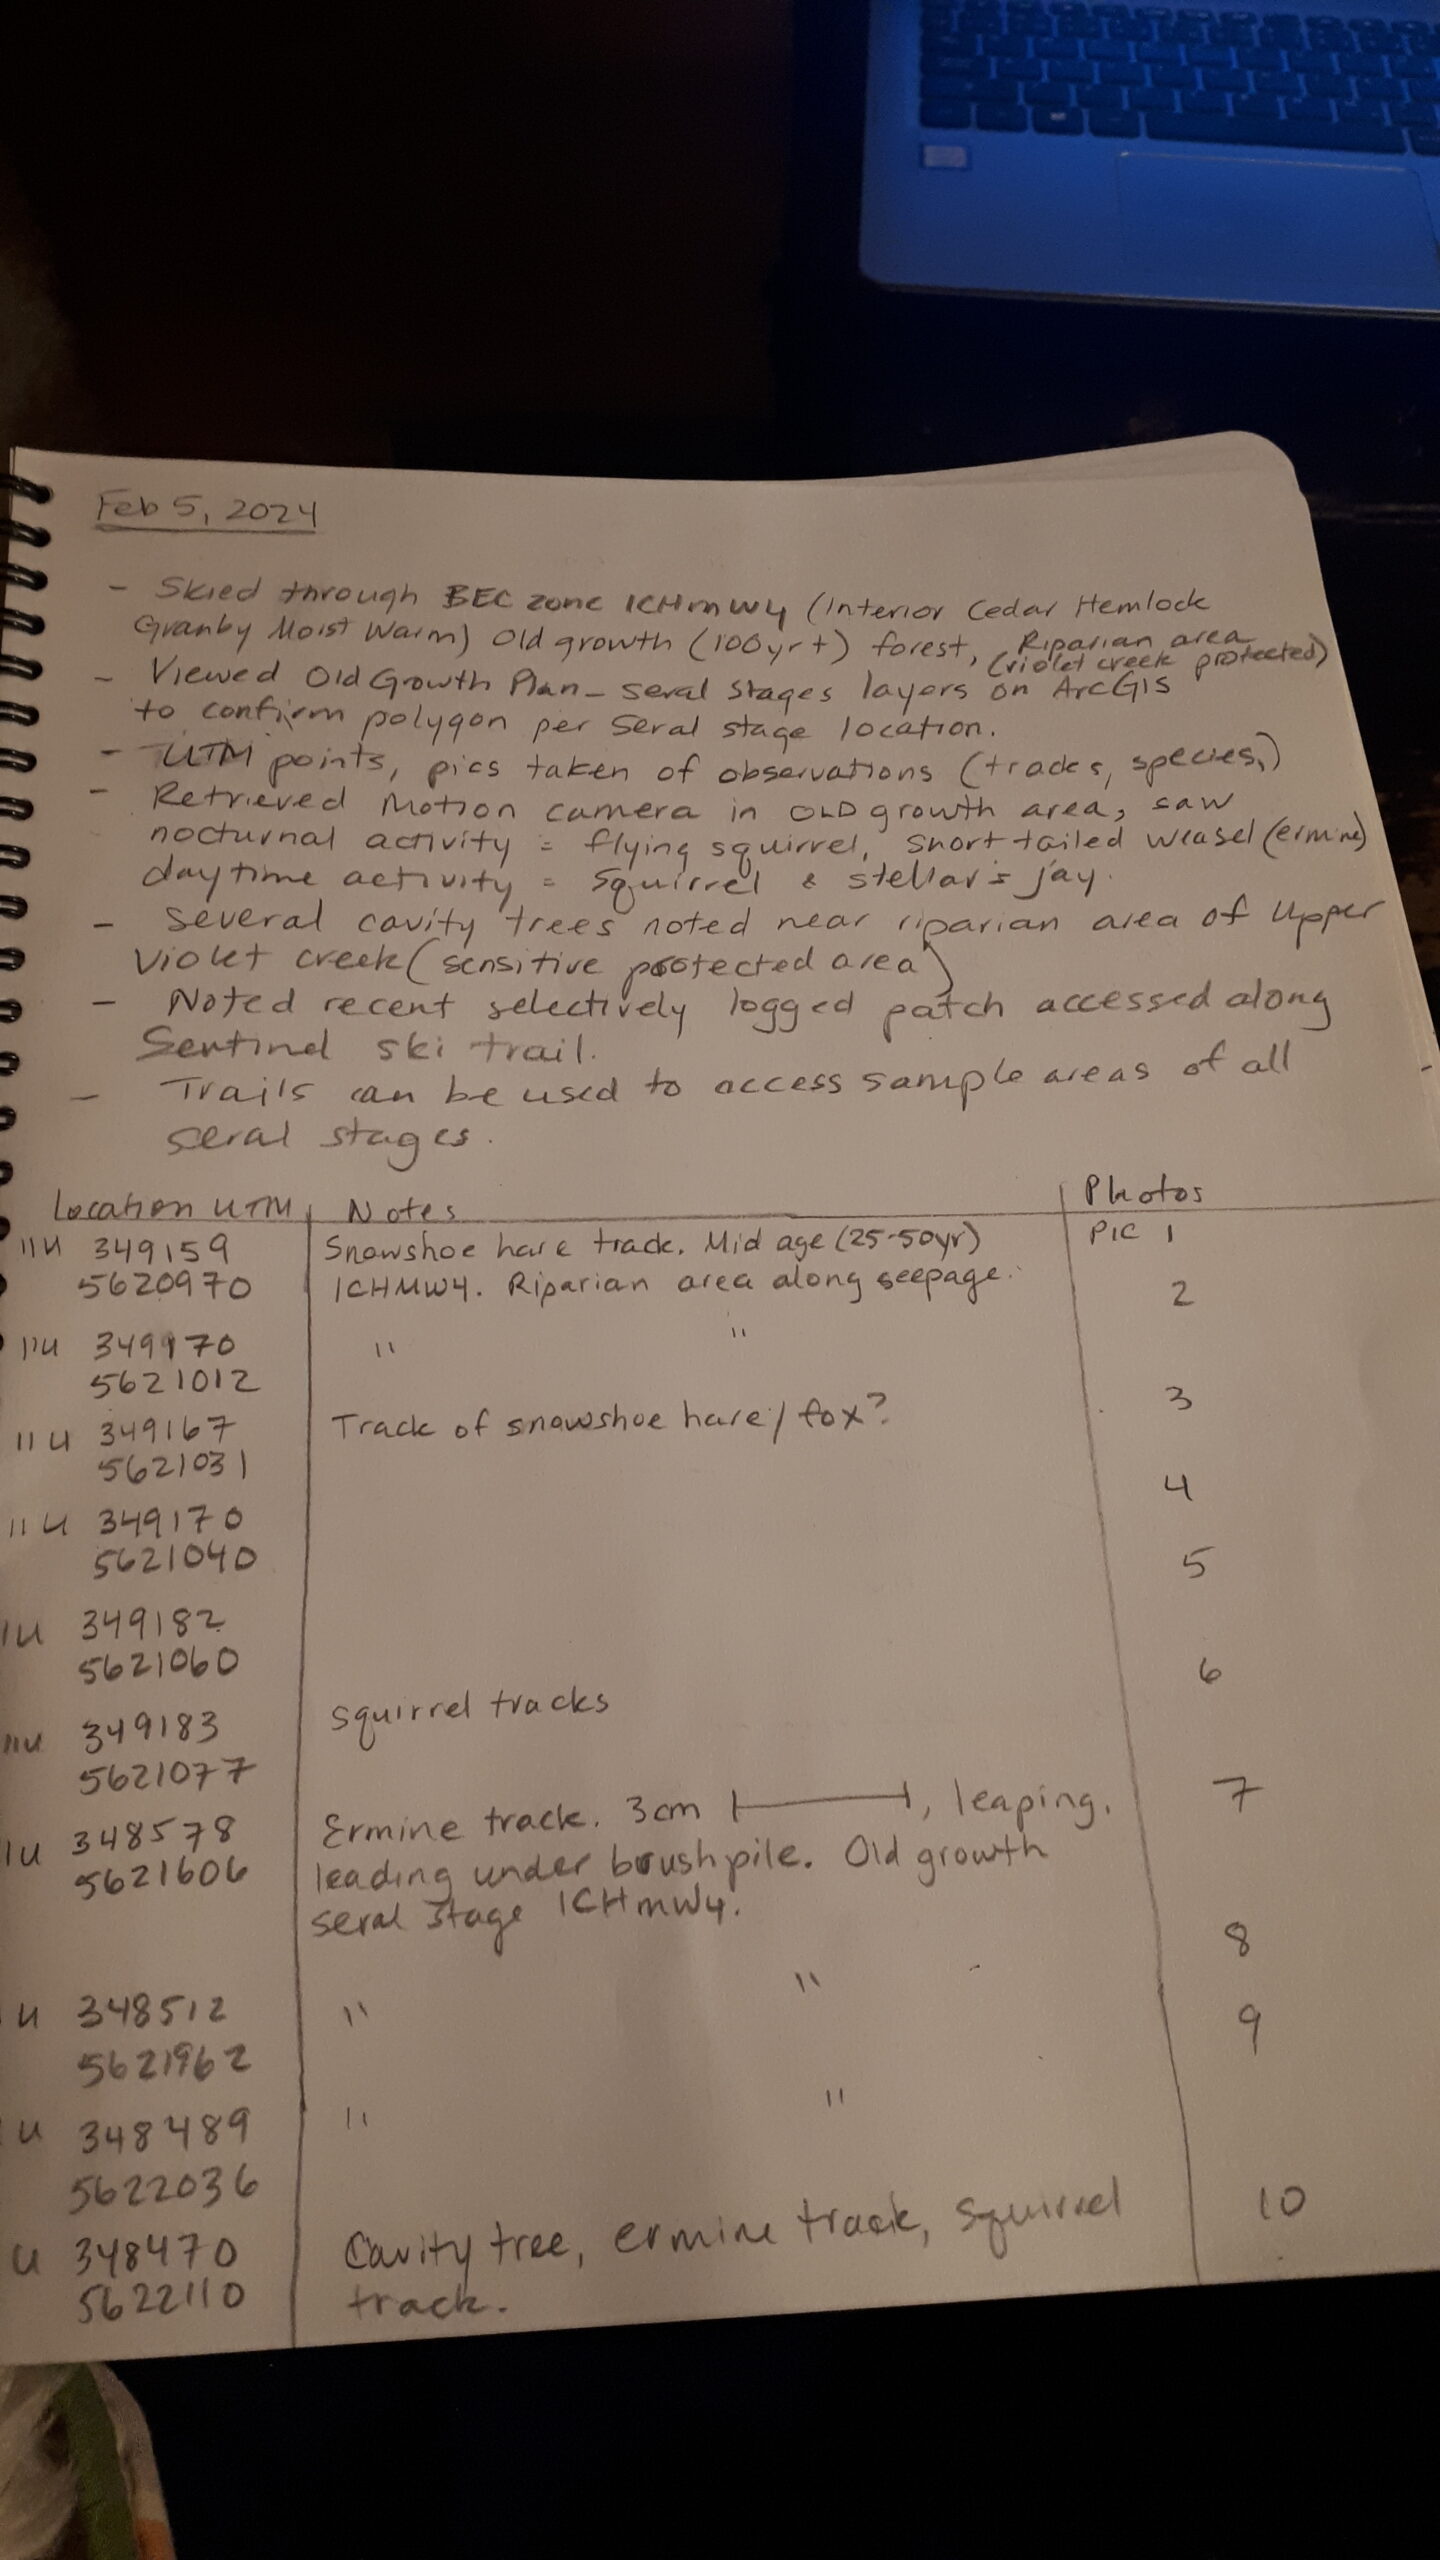 Feb 5, 2024
- Skied through BEC zone ICHmw4 (Interior Cedar Hemlock
Granby Moist Warm) Old growth (100yr+) forest, Riparian area
(violet creek protected)
- Viewed Old Growth Plan - seral stages layers on ArcGIS
to confirm polygon per seral stage location.
- UTM points, pics taken of observations (tracks, species,)
- Retrieved Motion camera in OLD growth area, saw
nocturnal activity = flying squirrel, short tailed weasel (ermine)
daytime activity = squirrel & stellar's jay.
- Several cavity trees noted near riparian area of Upper
Violet creek (sensitive protected area)
- Noted recent selectively logged patch accessed along
Sentinel ski trail.
- Trails can be used to access sample areas of all
seral stages.
Location UTM Notes Photos
11U 349159 Snowshoe hare track. Mid age (25-50yr) PIC 1
5620970 ICHMW4. Riparian area along seepage. 2
11U 349170 " "
5621012
11U 349167 Track of snowshoe hare / fox? 3
5621031
11U 349170 4
5621040 5
1U 349182
5621060 6
11U 349183 squirrel tracks
5621077
1U 348578 Ermine track. 3cm |—|, leaping. 7
5621606 leading under brushpile. Old growth
seral stage ICHmw4.
8
U 348512 " "
5621962 9
U 348489 " "
5622036
U 348470 Cavity tree, ermine track, squirrel 10
5622110 track.